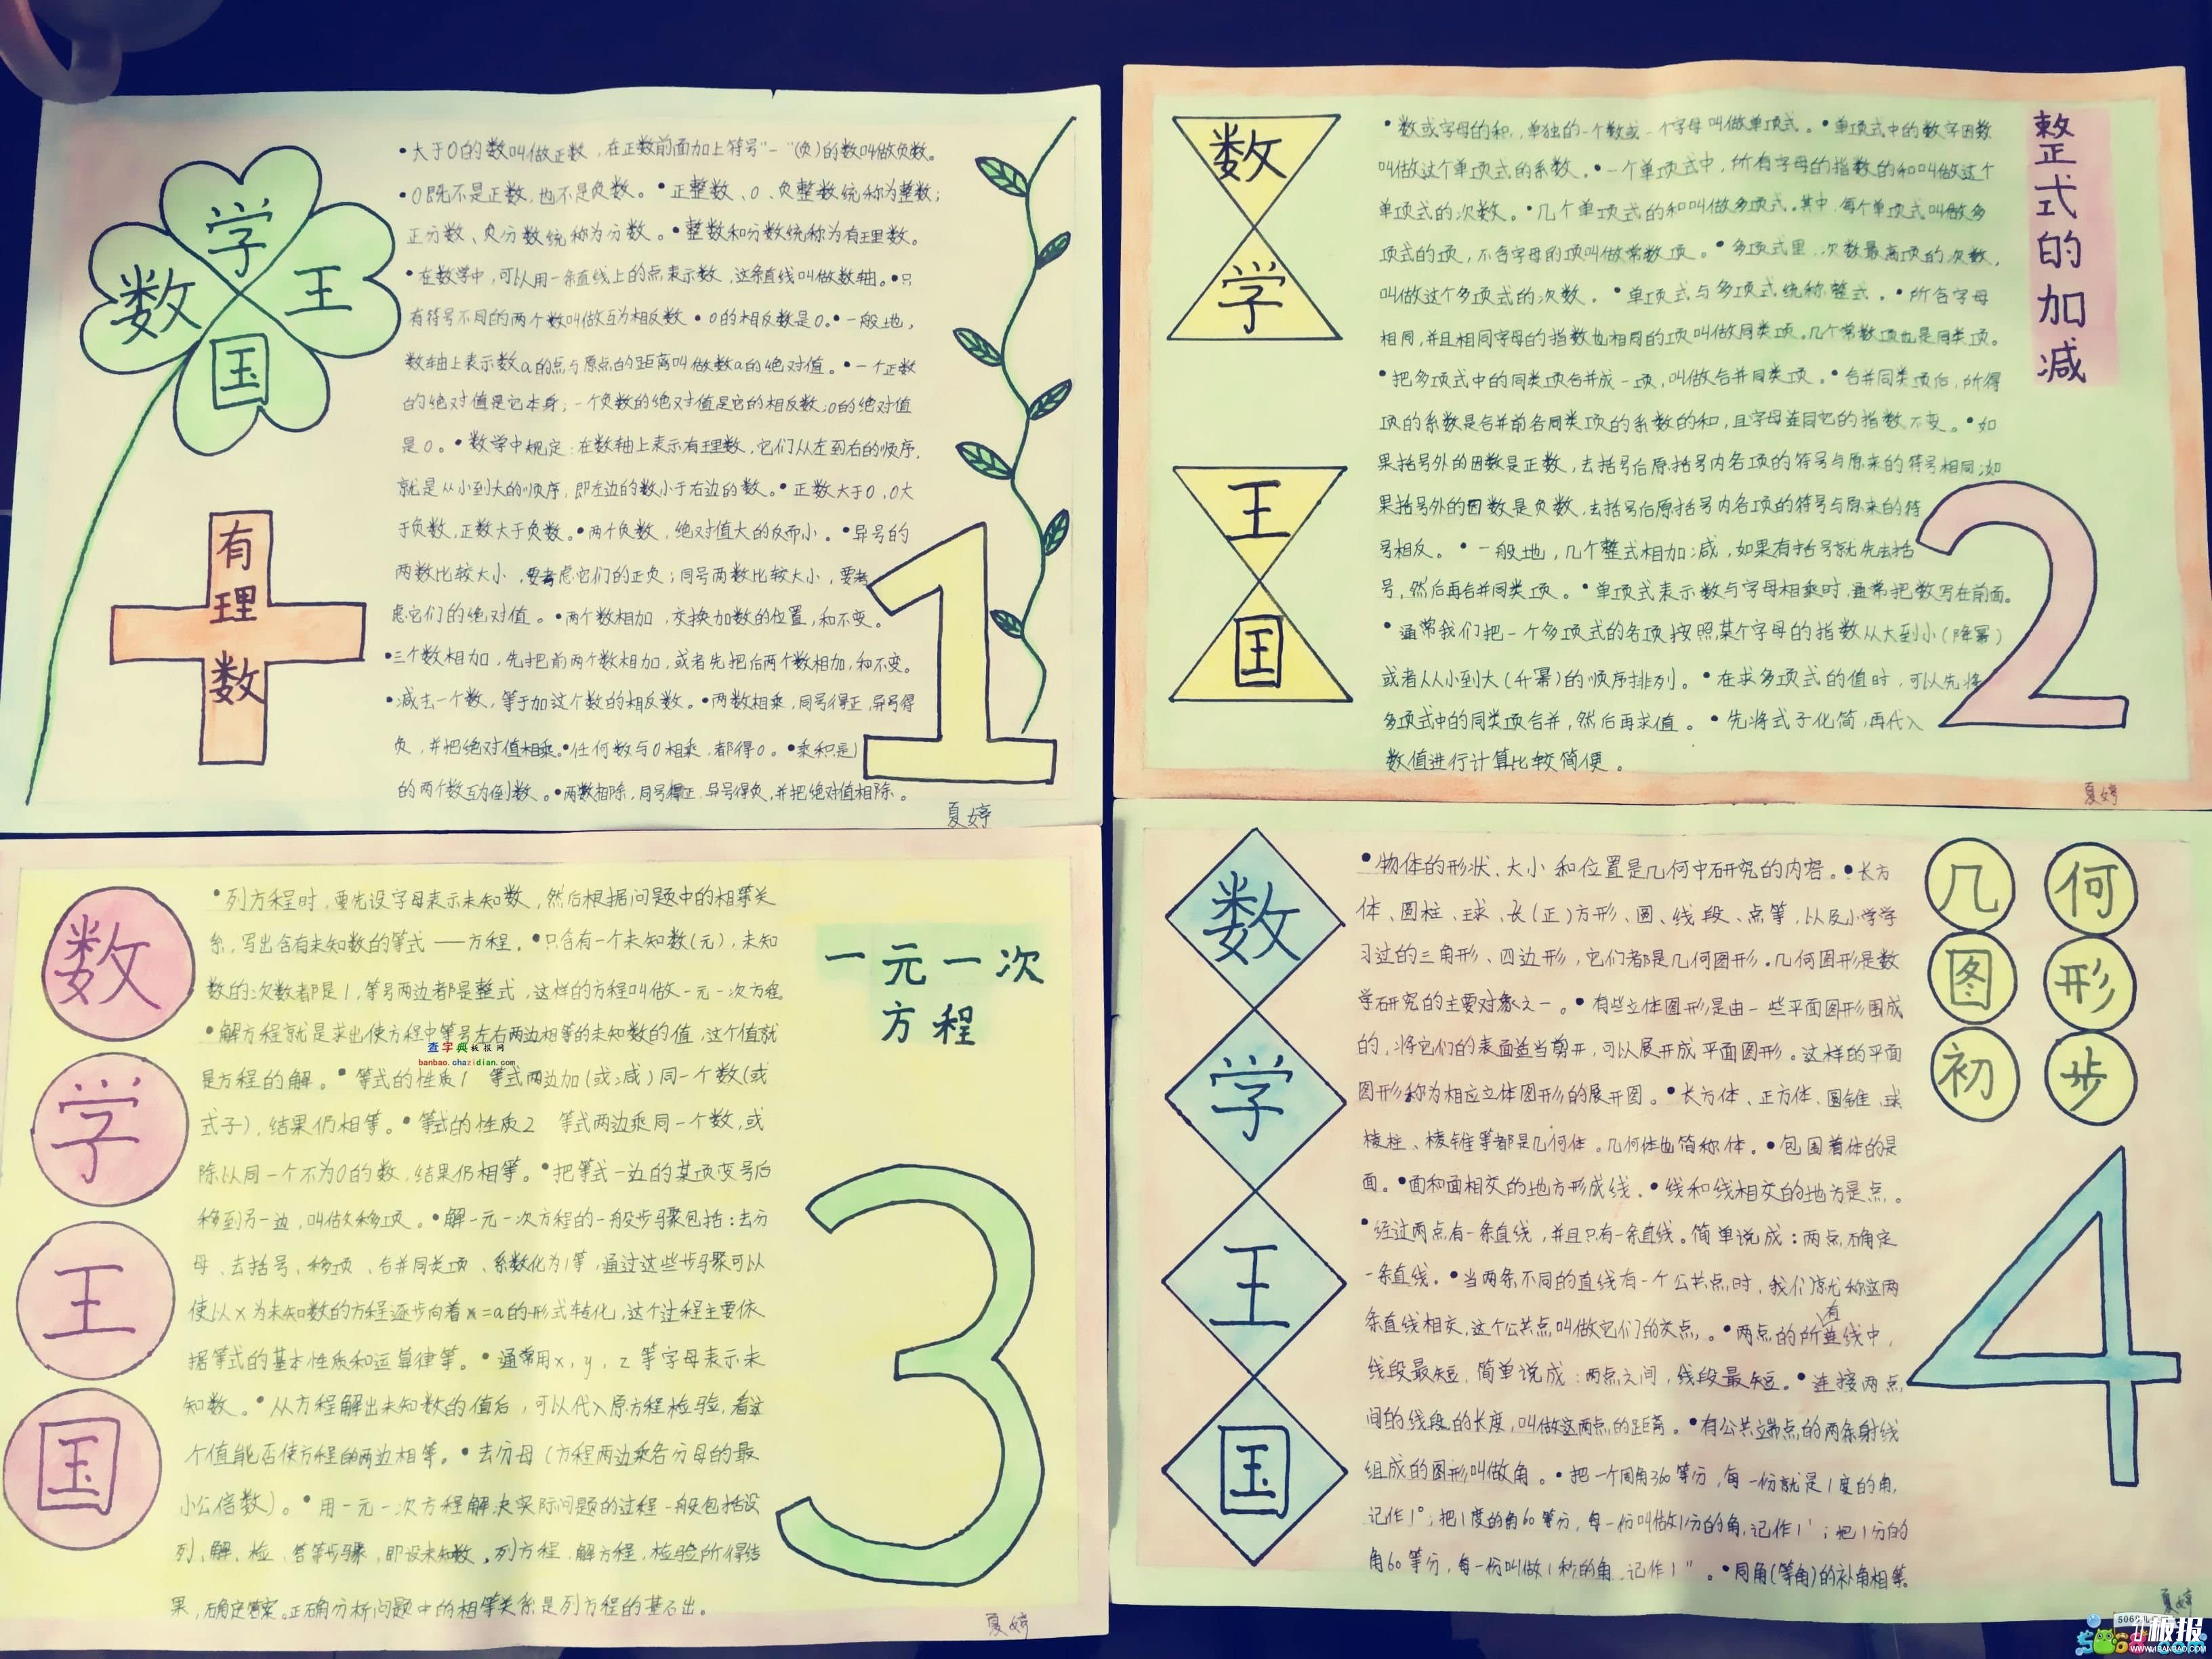 数学王国
有理数
•大于0的数叫做正数，在正数前面加上符号"－"(负)的数叫做负数。
•0既不是正数，也不是负数。•正整数、0、负整数统称为整数；
正分数、负分数统称为分数。•整数和分数统称为有理数。
•在数学中，可以用一条直线上的点表示数，这条直线叫做数轴。•只
有符号不同的两个数叫做互为相反数•0的相反数是0。•一般地，
数轴上表示数a的点与原点的距离叫做数a的绝对值。•一个正数
的绝对值是它本身；一个负数的绝对值是它的相反数；0的绝对值
是0。•数学中规定：在数轴上表示有理数，它们从左到右的顺序，
就是从小到大的顺序，即左边的数小于右边的数。•正数大于0，0大
于负数，正数大于负数。•两个负数，绝对值大的反而小。•异号的
两数比较大小，要考虑它们的正负；同号两数比较大小，要考
虑它们的绝对值。•两个数相加，交换加数的位置，和不变。
•三个数相加，先把前两个数相加，或者先把后两个数相加，和不变。
•减去一个数，等于加这个数的相反数。•两数相乘，同号得正，异号得
负，并把绝对值相乘。•任何数与0相乘，都得0。•乘积是1
的两个数互为倒数。•两数相除，同号得正，异号得负，并把绝对值相除。
1
夏婷
数学王国
整式的加减
•数或字母的积，单独的一个数或一个字母叫做单项式。•单项式中的数字因数
叫做这个单项式的系数。•一个单项式中，所有字母的指数的和叫做这个
单项式的次数。•几个单项式的和叫做多项式。其中，每个单项式叫做多
项式的项，不含字母的项叫做常数项。•多项式里，次数最高项的次数，
叫做这个多项式的次数。•单项式与多项式统称整式。•所含字母
相同，并且相同字母的指数也相同的项叫做同类项。几个常数项也是同类项。
•把多项式中的同类项合并成一项，叫做合并同类项。•合并同类项后，所得
项的系数是合并前各同类项的系数的和，且字母连同它的指数不变。•如
果括号外的因数是正数，去括号后原括号内各项的符号与原来的符号相同；如
果括号外的因数是负数，去括号后原括号内各项的符号与原来的符
号相反。•一般地，几个整式相加减，如果有括号就先去括
号，然后再合并同类项。•单项式表示数与字母相乘时，通常把数写在前面。
•通常我们把一个多项式的各项按照某个字母的指数从大到小(降幂)
或者从从小到大(升幂)的顺序排列。•在求多项式的值时，可以先将
多项式中的同类项合并，然后再求值。•先将式子化简，再代入
数值进行计算比较简便。
2
夏婷
数学王国
一元一次
方程
•列方程时，要先设字母表示未知数，然后根据问题中的相等关
系，写出含有未知数的等式——方程。•只含有一个未知数(元)，未知
数的次数都是1，等号两边都是整式，这样的方程叫做一元一次方程。
•解方程就是求出使方程中等号左右两边相等的未知数的值，这个值就
查字典板报网
banbao.chazidian.com
是方程的解。•等式的性质1 等式两边加(或减)同一个数(或
式子)，结果仍相等。•等式的性质2 等式两边乘同一个数，或
除以同一个不为0的数，结果仍相等。•把等式一边的某项变号后
移到另一边，叫做移项。•解一元一次方程的一般步骤包括：去分
母、去括号、移项、合并同类项、系数化为1等，通过这些步骤可以
使以x为未知数的方程逐步向着x=a的形式转化，这个过程主要依
据等式的基本性质和运算律等。•通常用x，y，z等字母表示未
知数。•从方程解出未知数的值后，可以代入原方程检验，看这
个值能否使方程的两边相等。•去分母(方程两边乘各分母的最
小公倍数)。•用一元一次方程解决实际问题的过程一般包括设
列、解、检、答等步骤，即设未知数，列方程，解方程，检验所得结
果，确定答案。正确分析问题中的相等关系是列方程的基石出。
3
夏婷
数学王国
几何图形初步
•物体的形状、大小和位置是几何中研究的内容。•长方
体、圆柱、球、长(正)方形、圆、线段、点等，以及小学学
习过的三角形、四边形，它们都是几何图形。几何图形是数
学研究的主要对象之一。•有些立体图形是由一些平面图形围成
的，将它们的表面适当剪开，可以展开成平面图形。这样的平面
图形称为相应立体图形的展开图。•长方体、正方体、圆锥、球
棱柱、棱锥等都是几何体。几何体也简称体。•包围着体的是
面。•面和面相交的地方形成线。•线和线相交的地方是点。
•经过两点有一条直线，并且只有一条直线。简单说成：两点确定
一条直线。•当两条不同的直线有一个公共点时，我们就称这两
条直线相交，这个公共点叫做它们的交点。•两点的所有连线中，
线段最短，简单说成：两点之间，线段最短。•连接两点
间的线段的长度，叫做这两点的距离。•有公共端点的两条射线
组成的图形叫做角。•把一个周角360等分，每一份就是1度的角，
记作1°；把1度的角60等分，每一份叫做1分的角，记作1′；把1分的
角60等分，每一份叫做1秒的角，记作1″。•同角(等角)的补角相等
4
夏婷
板报
WWW.1BANBAO.COM